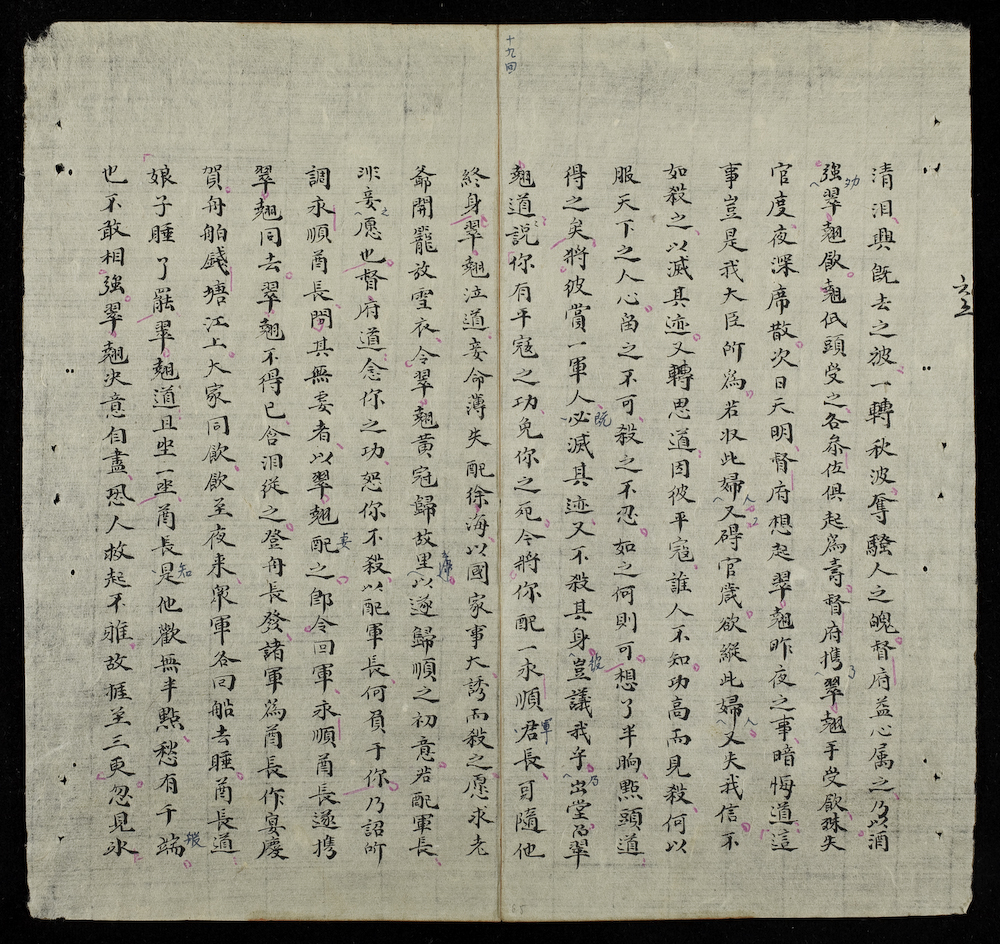 十九回
清泪興既去之波一轉秋波奪騷人之魄督府益心属之乃以酒
強翠翹飲翹低頭受之各叅佐俱起爲壽督府携翠翹手受飲殊失
官度夜深席散次日天明督府想起翠翹昨夜之事暗悔道這
事豈是我大臣所爲若收此婦又碍官歲欲縱此婦又失我信不
如殺之以滅其迹又轉思道因彼平寇誰人不知功高而見殺何以
服天下之人心畄之不可殺之不忍如之何則可想了半晌點頭道
得之矣將彼賞一軍人必滅其迹又不殺其身豈議我乎出堂召翠
翹道説你有平寇之功免你之死今將你配一永順君長可隨他
終身翠翹泣道妾命薄失配徐海以國家事大誘而殺之愿求老
爺開籠放雪衣令翠翹黄冠歸故里以遂歸順之初意若配軍長
非妾愿也督府道念你之功恕你不殺以配軍長何負于你乃詔所
調永順酋長問其無妻者以翠翹配之卽令回軍永順酋長遂携
翠翹同去翠翹不得已含泪從之登舟長發諸軍爲酋長作宴慶
賀舟舶錢塘江上大家同飲飲至夜来衆軍各回船去睡酋長道
娘子睡了罷翠翹道且坐一坐酋長是他歡無半點愁有千端
也不敢相強翠翹决意自盡恐人救起不雅故捱至三更忽見氷